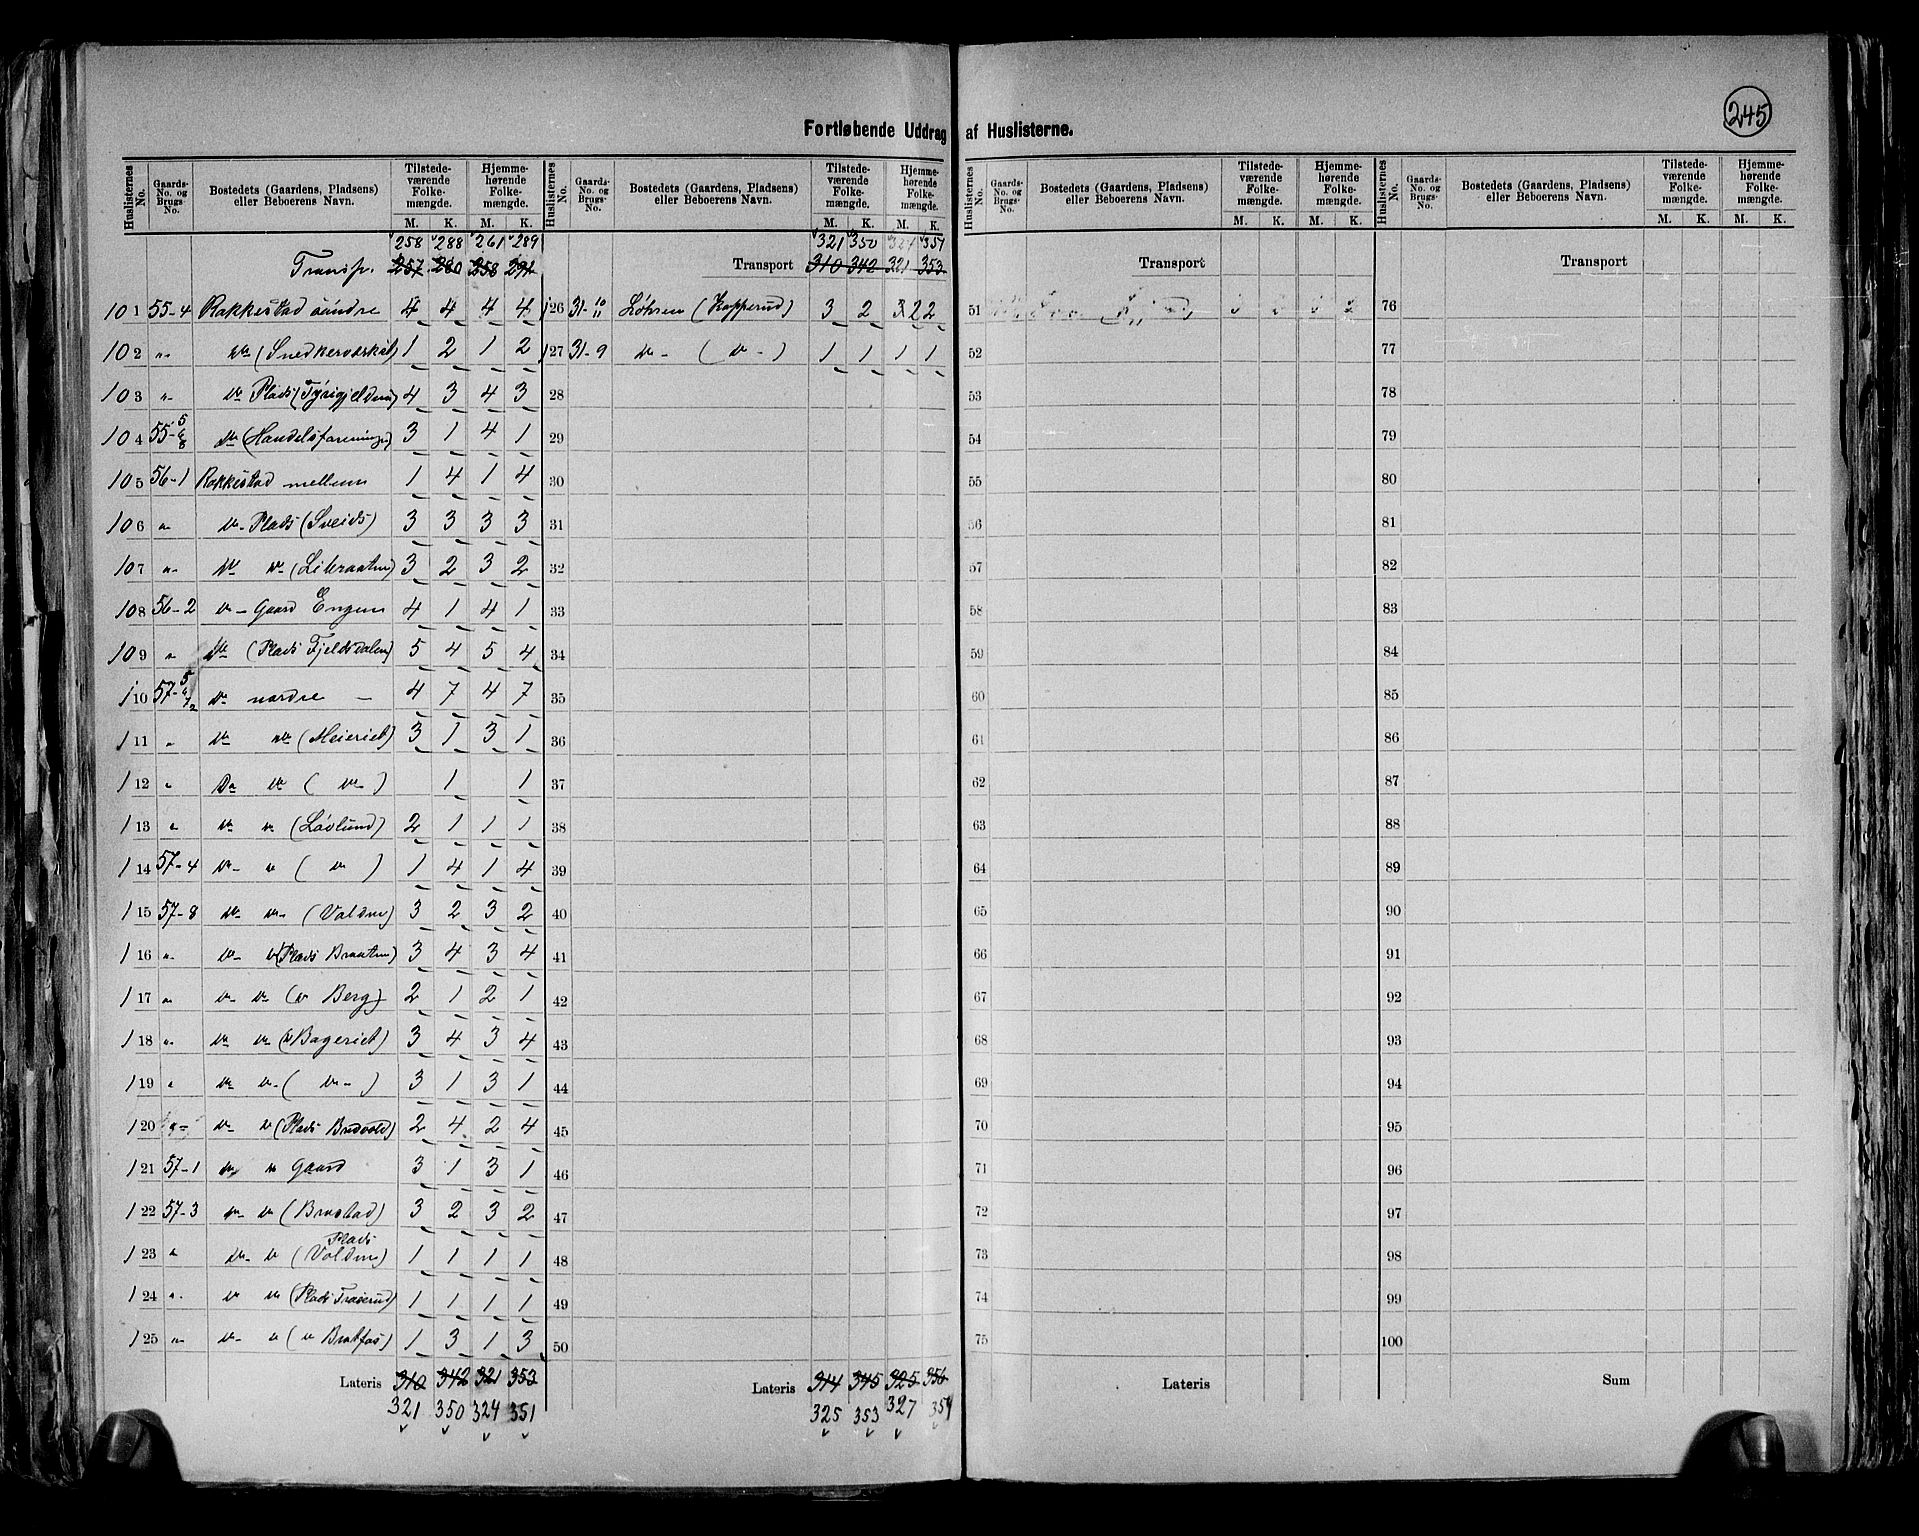 245
Fortløbende Uddrag af Huslisterne.
Huslisternes No. Gaards-No. og Brugs-No. Bostedets (Gaardens, Pladsens) eller Beboerens Navn. Tilstede-værende Folke-mængde. M. K. Hjemme-hørende Folke-mængde. M. K.
258 288 261 289
Transp. 257 280 258 291
101 55-4 Rakkestad søndre 4 4 4 4
102 " do (Snedkerværkst) 1 2 1 2
103 " do Plads (Tyrigjelden) 4 3 4 3
104 55-5 6 8 do (Handelsforeningen) 3 1 4 1
105 56-1 Rakkestad mellem 1 4 1 4
106 " do Plads (Sveids) 3 3 3 3
107 " do do 3 2 3 2
108 56-2 do Gaard Engen 4 1 4 1
109 " do (Plads Fjeldsdalen) 5 4 5 4
110 57-5 do nordre 4 7 4 7
111 " do do (Meieriet) 3 1 3 1
112 " Do do ( do ) 1 1
113 " do do (Løvlund) 2 1 1 1
114 57-4 do do ( do ) 1 4 1 4
115 57-8 do do (Volden) 3 2 3 2
116 " do do (Plads Braaten) 3 4 3 4
117 " do do (do Berg) 2 1 2 1
118 " do do (Bageriet) 3 4 3 4
119 " do do ( do ) 3 1 3 1
120 do do (Plads Bredvold) 2 4 2 4
121 57-1 do do Gaard 3 1 3 1
122 57-3 do do (Brustad) 3 2 3 2
123 " do do (Plads Volden) 1 1 1 1
124 " do do (Plads) 1 1 1 1
125 " do do (do) 1 3 1 3
Lateris 310 342 321 353
321 350 324 351
Huslisternes No. Gaards-No. og Brugs-No. Bostedets (Gaardens, Pladsens) eller Beboerens Navn. Tilstede-værende Folke-mængde. M. K. Hjemme-hørende Folke-mængde. M. K.
321 350 324 351
Transport 310 342 321 353
126 31-10 11 Løhren (Kopperud) 3 2 2 2
127 31-9 do ( do ) 1 1 1 1
28
29
30
31
32
33
34
35
36
37
38
39
40
41
42
43
44
45
46
47
48
49
50
Lateris 314 345 325 356
325 353 327 354
Huslisternes No. Gaards-No. og Brugs-No. Bostedets (Gaardens, Pladsens) eller Beboerens Navn. Tilstede-værende Folke-mængde. M. K. Hjemme-hørende Folke-mængde. M. K.
Transport
51
52
53
54
55
56
57
58
59
60
61
62
63
64
65
66
67
68
69
70
71
72
73
74
75
Lateris
Huslisternes No. Gaards-No. og Brugs-No. Bostedets (Gaardens, Pladsens) eller Beboerens Navn. Tilstede-værende Folke-mængde. M. K. Hjemme-hørende Folke-mængde. M. K.
Transport
76
77
78
79
80
81
82
83
84
85
86
87
88
89
90
91
92
93
94
95
96
97
98
99
100
Sum